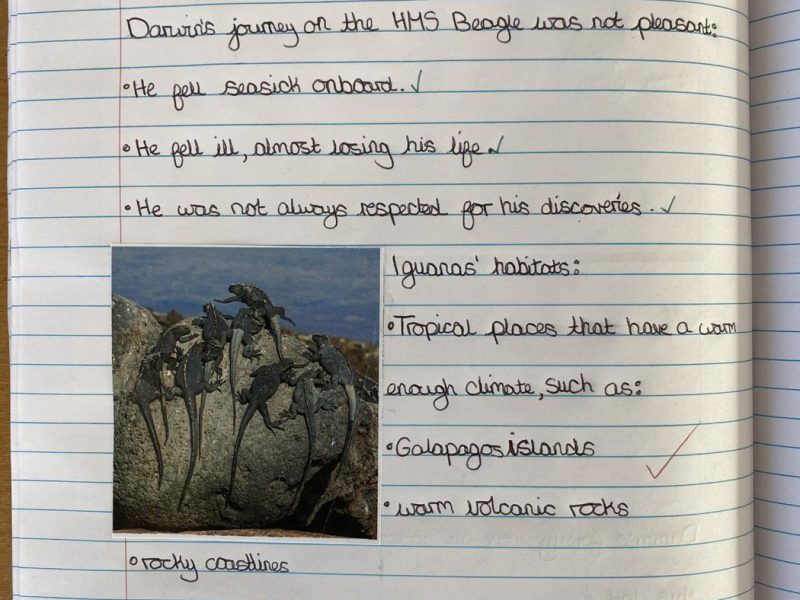 Darwin's journey on the HMS Beagle was not pleasant:
• He fell seasick onboard. ✓
• He fell ill, almost losing his life. ✓
• He was not always respected for his discoveries. ✓
Iguanas' habitats:
• Tropical places that have a warm
enough climate, such as:
• Galapagos islands
• warm volcanic rocks
• rocky coastlines